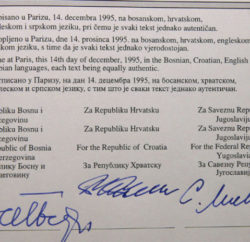 pisano u Parizu, 14. decembra 1995, na bosanskom, hrvatskom,
leskom i srpskom jeziku, pri čemu je svaki tekst jednako autentičan.
pljeno u Parizu, dne 14. prosinca 1995, na bosanskom, hrvatskom, engleskom
m jeziku, s time da je svaki tekst jednako vjerodostojan.
ne at Paris, this 14th day of December, 1995, in the Bosnian, Croatian, English
bian languages, each text being equally authentic.
тписано у Паризу, на дан 14. децембра 1995, на босанском, хрватском,
еском и српском језику, с тим што је сваки текст једнако аутентичан.
publiku Bosnu i Za Republiku Hrvatsku Za Saveznu Repub
rcegovinu Jugoslaviju
publiku Bosnu i Za Republiku Hrvatsku Za Saveznu Repub
rcegovinu Jugoslaviju
public of Bosnia For the Republic of Croatia For the Federal Rep
erzegovina Yugoslavia
блику Босну и За Републику Хрватску За Савезну Репуб
еговину Југославију